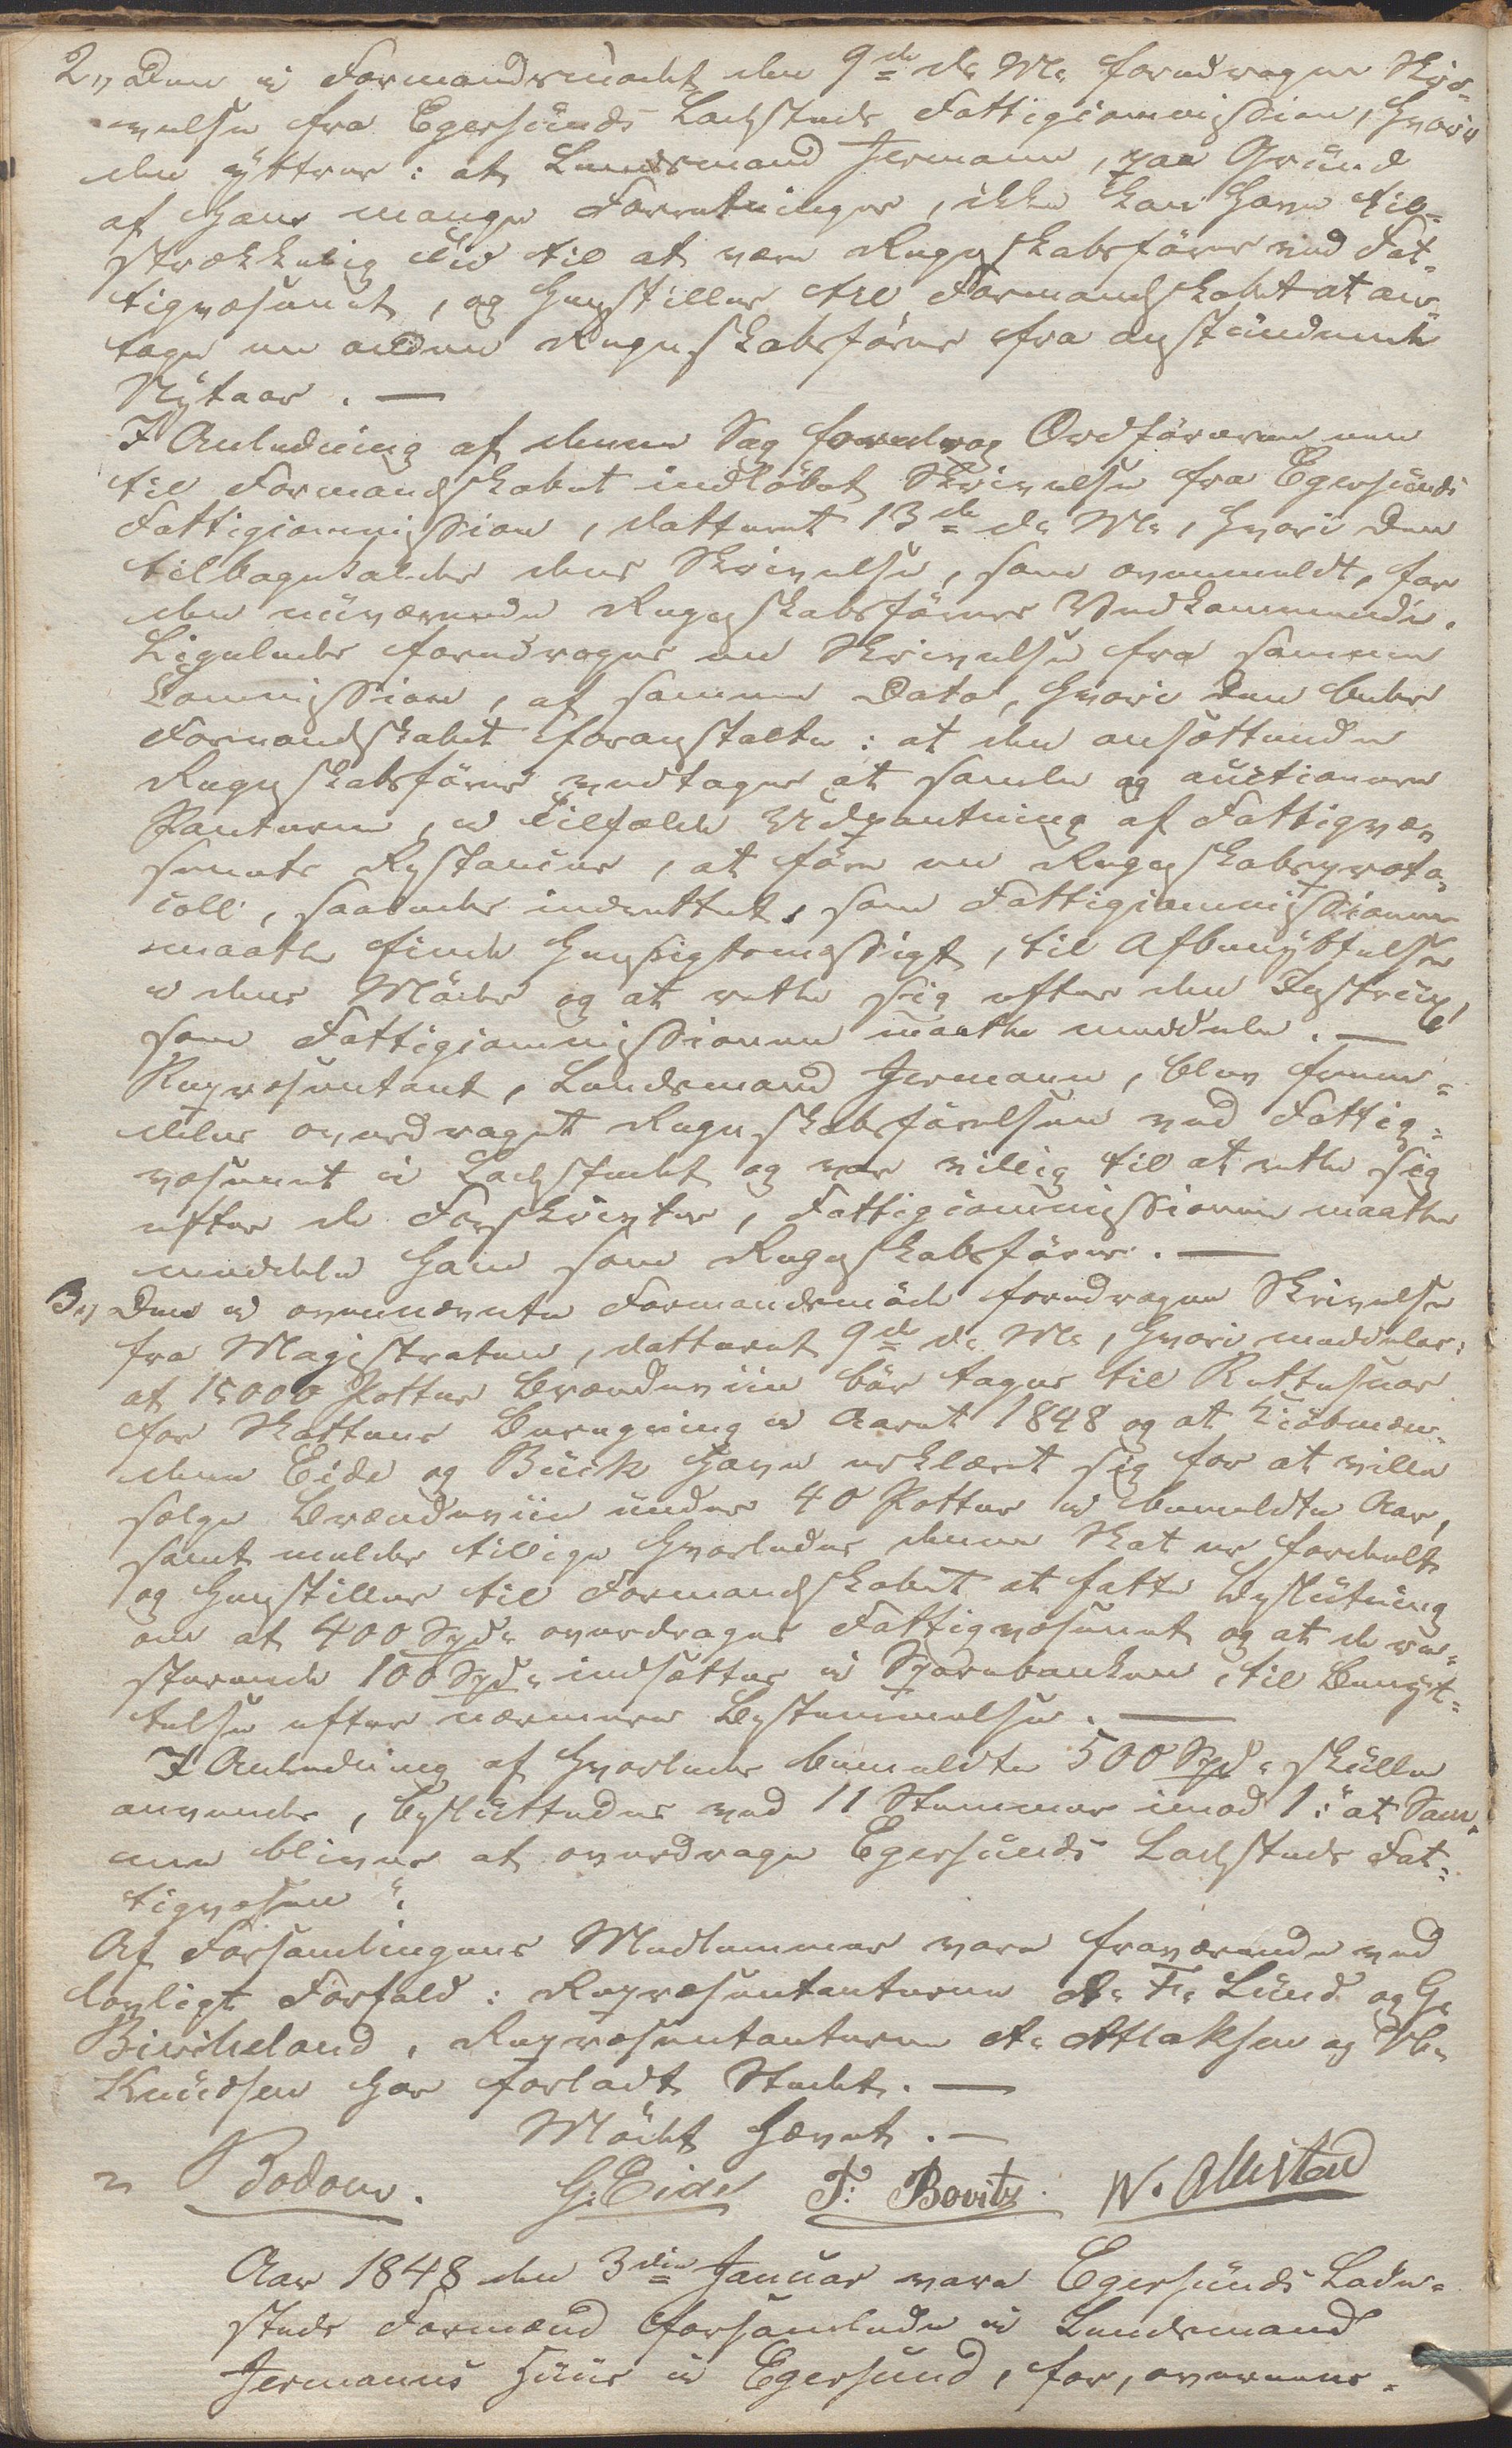 2, Den i Formandsmødet den 9de d. M. foredragne Skri-
velse fra Egersunds Ladesteds Fattigcommission, hvori
den yttrer: at Lendsmand Jermann, paa Grund
af hans mange Forretninger, ikke kan have til-
strækkelig Tid til at være Regnskabsfører ved Fat-
tigvæsenet, og henstiller til Formandskabet at an-
tage en anden Regnskabsfører fra anstundende
Nytaar. —
I Anledning af denne Sag foredrog Ordføreren en
til Formandskabet indløbet Skrivelse fra Egersunds
Fattigcommission, datteret 13de d. M., hvori den
tilbagekalder dens Skrivelse, som ovenmeldt, for
den nuværende Regnskabsfører Vedkommende.
Ligeledes foredroges en Skrivelse fra samme
Commission, af samme Dato, hvori den beder
Formandskabet foranstalte: at den ansættende
Regnskabsfører vedtager at samle og auctionere
Panterne, i Tilfælde Udpantning af Fattigvæ-
senets Restancer, at føre en Regnskabsproto-
coll, saaledes indrettet, som Fattigcommissionen
maatte finde hensigtsmæssigt, til Afbenyttelse
i dens Møder og at rette sig efter den Instrux,
som Fattigcommissionen maatte meddele. —
Repræsentant, Lendsmand Jermann, blev frem-
deles overdraget Regnskabsførelsen ved Fattig-
væsenet i Ladestedet og var villig til at rette sig
efter de Forskrivter, Fattigcommissionen maatte
meddele ham som Regnskabsfører. —
3, Den i ovennævnte Formandsmøde foredragne Skrivelse
fra Magistraten, datteret 9de d. M., hvori meddeles:
at 15000 Potter Brændeviin bør tages til Rettesnor
for Skattens Beregning i Aaret 1848 og at Kiøbmæn-
dene Eide og Buck have erklæret sig for at ville
sælge Brændeviin under 40 Potter i bemeldte Aar,
samt melder tillige hvorledes denne Skat er fordeelt
og henstiller til Formandskabet at fatte Beslutning
om at 400 Spd. overdrages Fattigvæsenet og at de re-
sterende 100 Spd. indsættes i Sparebanken, til Benyt-
telse efter nærmere Bestemmelse. —
I Anledning af hvorledes bemeldte 500 Spd. skulle
anvendes, besluttedes med 11 Stemmer imod 1: "at Sam-
me bliver at overdrage Egersunds Ladesteds Fat-
tigvæsen".
Af Forsamlingens Medlemmer vare fraværende ved
lovligt Forfald: Repræsentanterne A. F. Lund og G.
Birkeland, Repræsentanterne A. Atlaksen og
Knudsen har forladt Stedet. —
Mødet hævet. —
Bodom. G. Eide F: Bovitz. W.
Aar 1848 den 3die Januar vare Egersunds Lade-
steds Formænd forsamlede i Lendsmand
Jermanns Huus i Egersund, for, overeens-